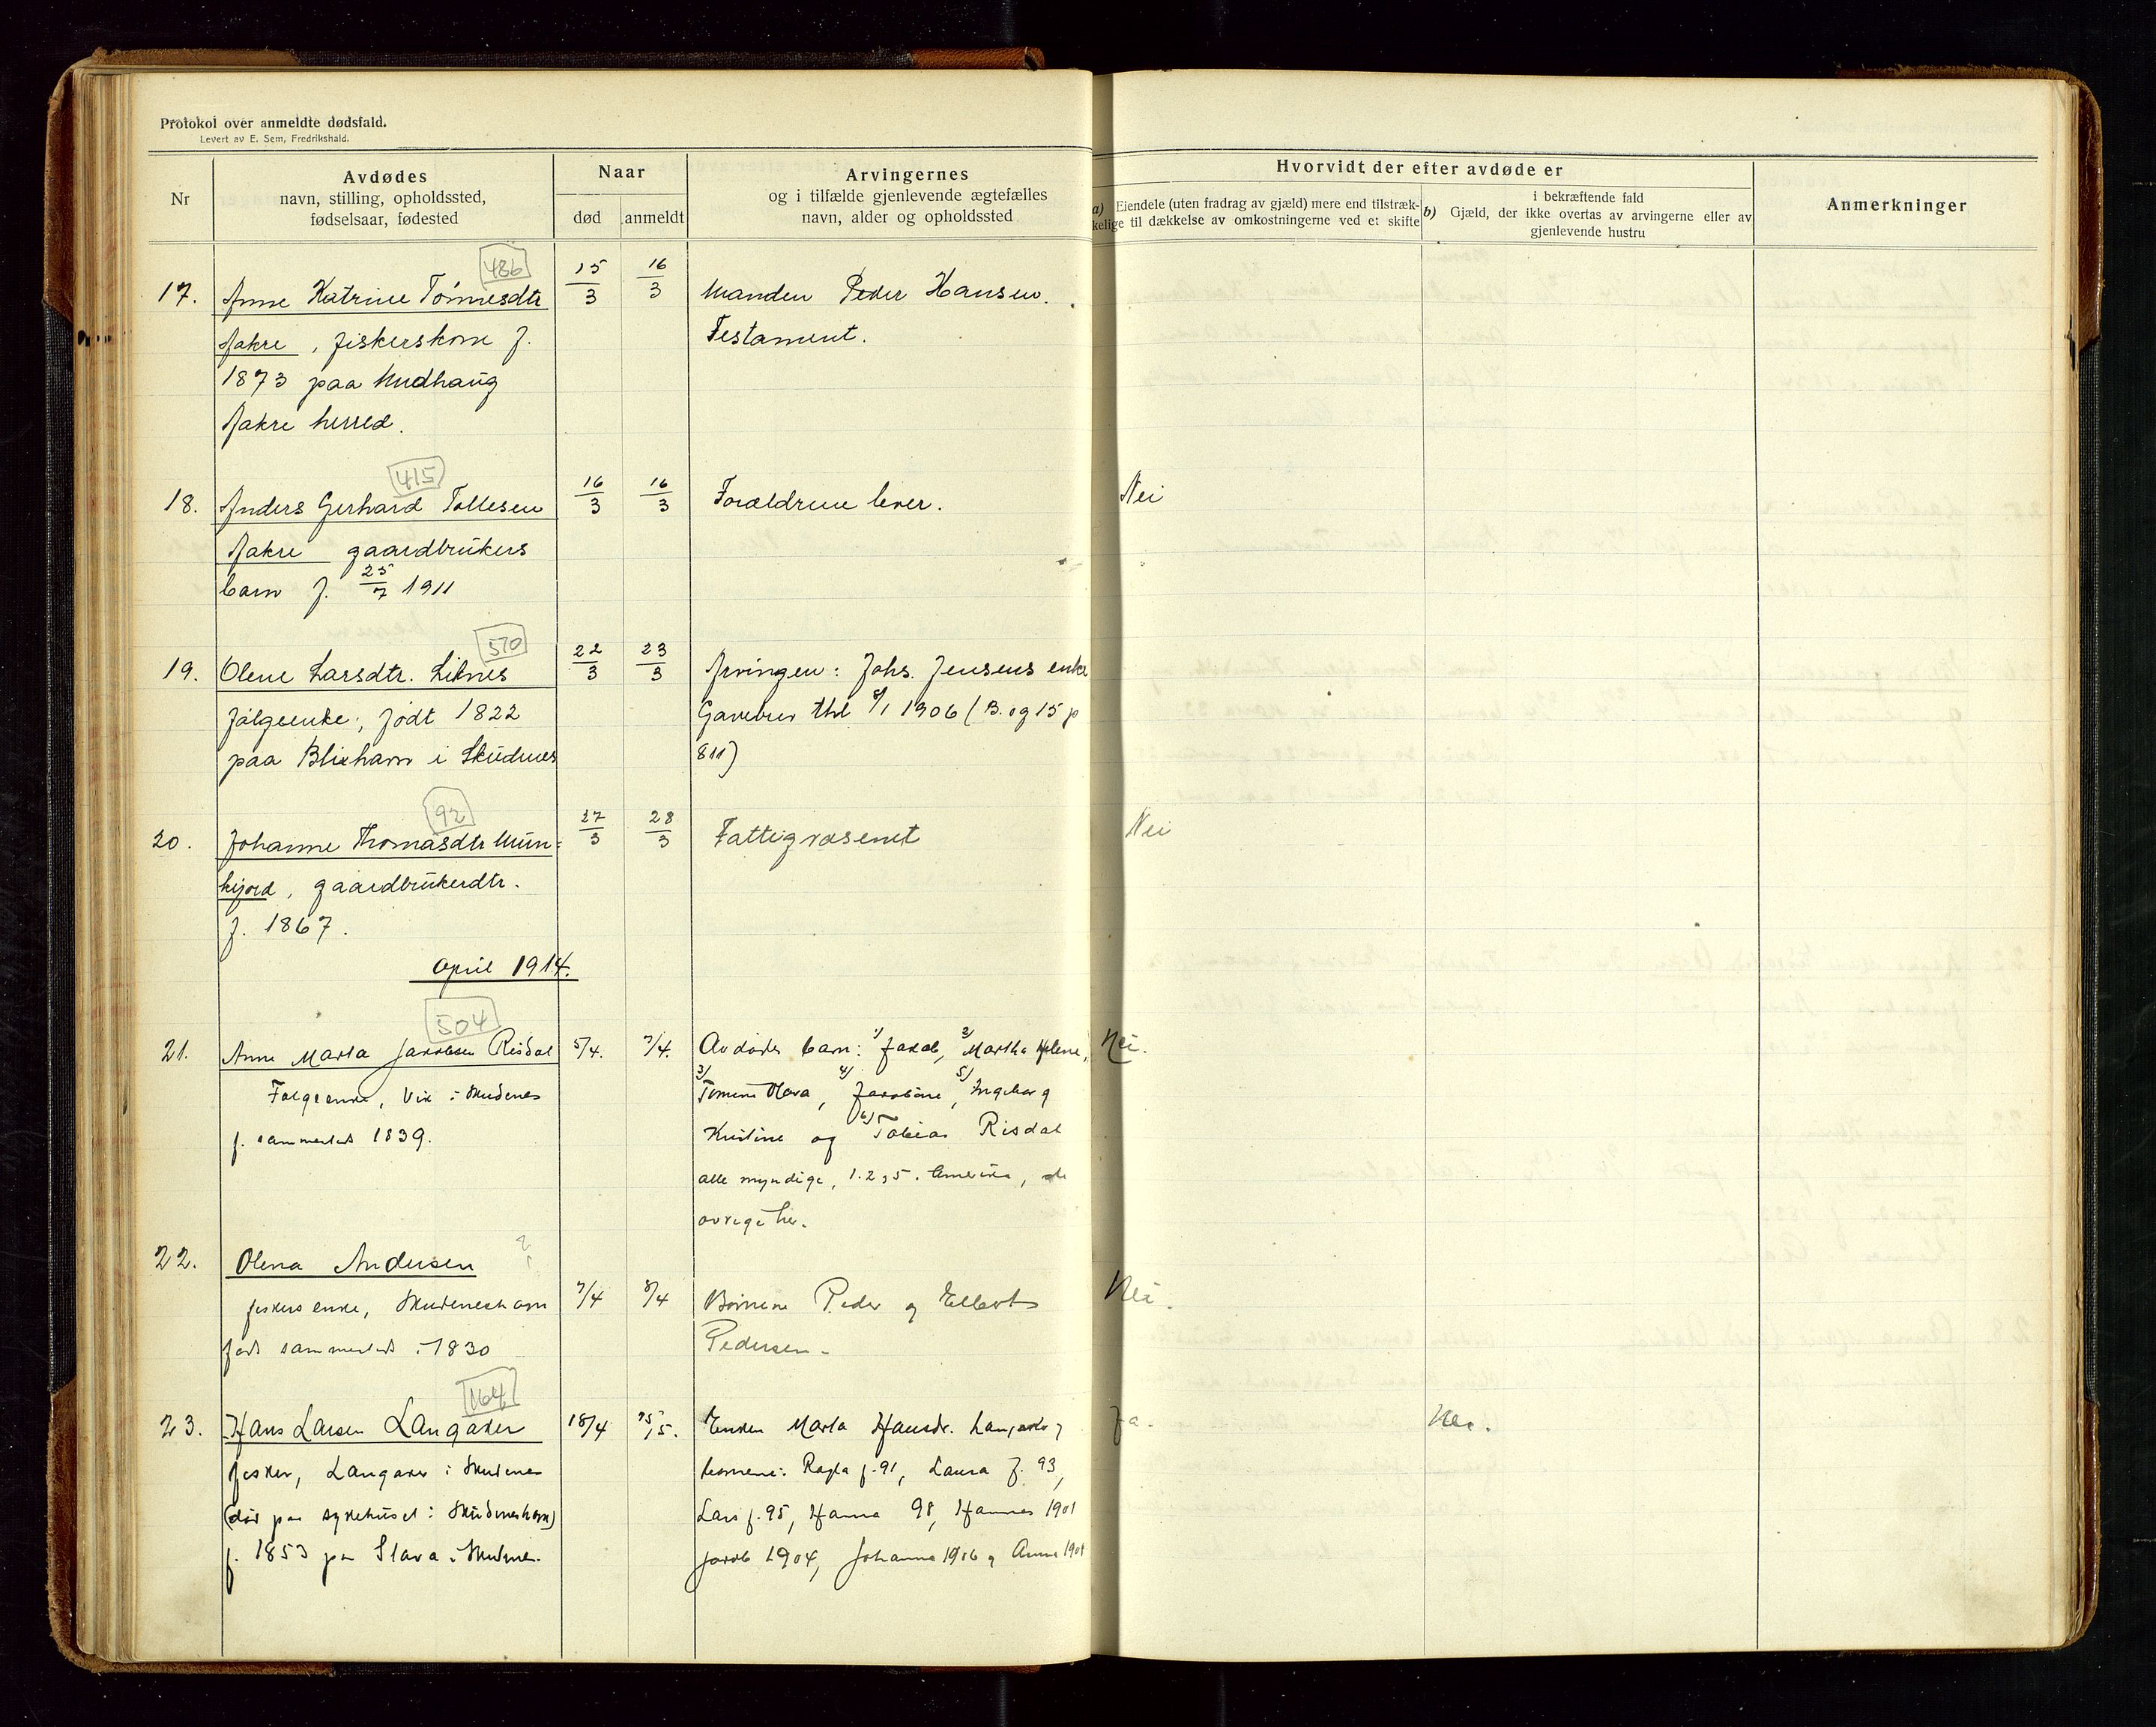 Protokol over anmeldte dødsfald.
Levert av E. Sem, Fredrikshald.
Nr
Avdødes
navn, stilling, opholdssted,
fødselsaar, fødested
Naar
død
anmeldt
Arvingernes
og i tilfælde gjenlevende ægtefælles
navn, alder og opholdssted
Hvorvidt der efter avdøde er
a) Eiendele (uten fradrag av gjæld) mere end tilstræk-
kelige til dækkelse av omkostningerne ved et skifte
b) i bekræftende fald
Gjæld, der ikke overtas av arvingerne eller av
gjenlevende hustru
Anmerkninger
486
17. Anne Katrine Tönnesdtr 15/3 16/3 Manden Peder Hansen.
Aakre, fiskerskone f. Testament.
1873 paa Mudhaug
Aakre herred.
415
18. Anders Gerhard Tollesen 16/3 16/3 Forældrene lever. Nei
Aakre gaardbrukers
barn f. 25/7 1911
570
19. Olene Larsdtr. Liknes 22/3 23/3 Arvingen: Johs. Jensens enke
følgeenke, født 1822 Gavebrev thl 8/1 1906 (B. og 15 p
paa Blixhavn i Skudnes 811)
92
20. Johanne Thomasdtr Mun= 27/3 28/3 Fattigvæsenet Nei
kijord, gaardbrukerdtr.
f. 1867.
April 1914.
504
21. Anne Marta Jakobsen Risdal 5/4. 7/4. Avdødes barn: 1/ Jakob, 2/ Martha Helene, Nei.
Følgeenke, Vik i Skudenes 3/ Tomine Olava, 4/ Jakobine, 5/ Ingeborg
f. sammesteds 1839. Kristine og 6/ Tobias Risdal
alle myndige, 1. 2 og 5. Amerika, de
øvrige her.
22. Olena Andersen ?
fiskers enke, Skudeneshavn 7/4 8/4 Börnene Peder og Elbert Nei.
född sammesteds i 1830 Pedersen.
164
23. Hans Larsen Langaker 18/4 15/5. Enken Marta Hansdr. Langaker og Ja. Nei.
fisker, Langaker i Skudenes børnene: Ragla f. 91, Laura f. 93,
(død paa sykehuset i Skudeneshavn) Lars f. 95, Hanna 98, Hannes 1901
f. 1853 paa Stava i Skudenes. Jakob 1904, Johanna 1906 og Anna 1901